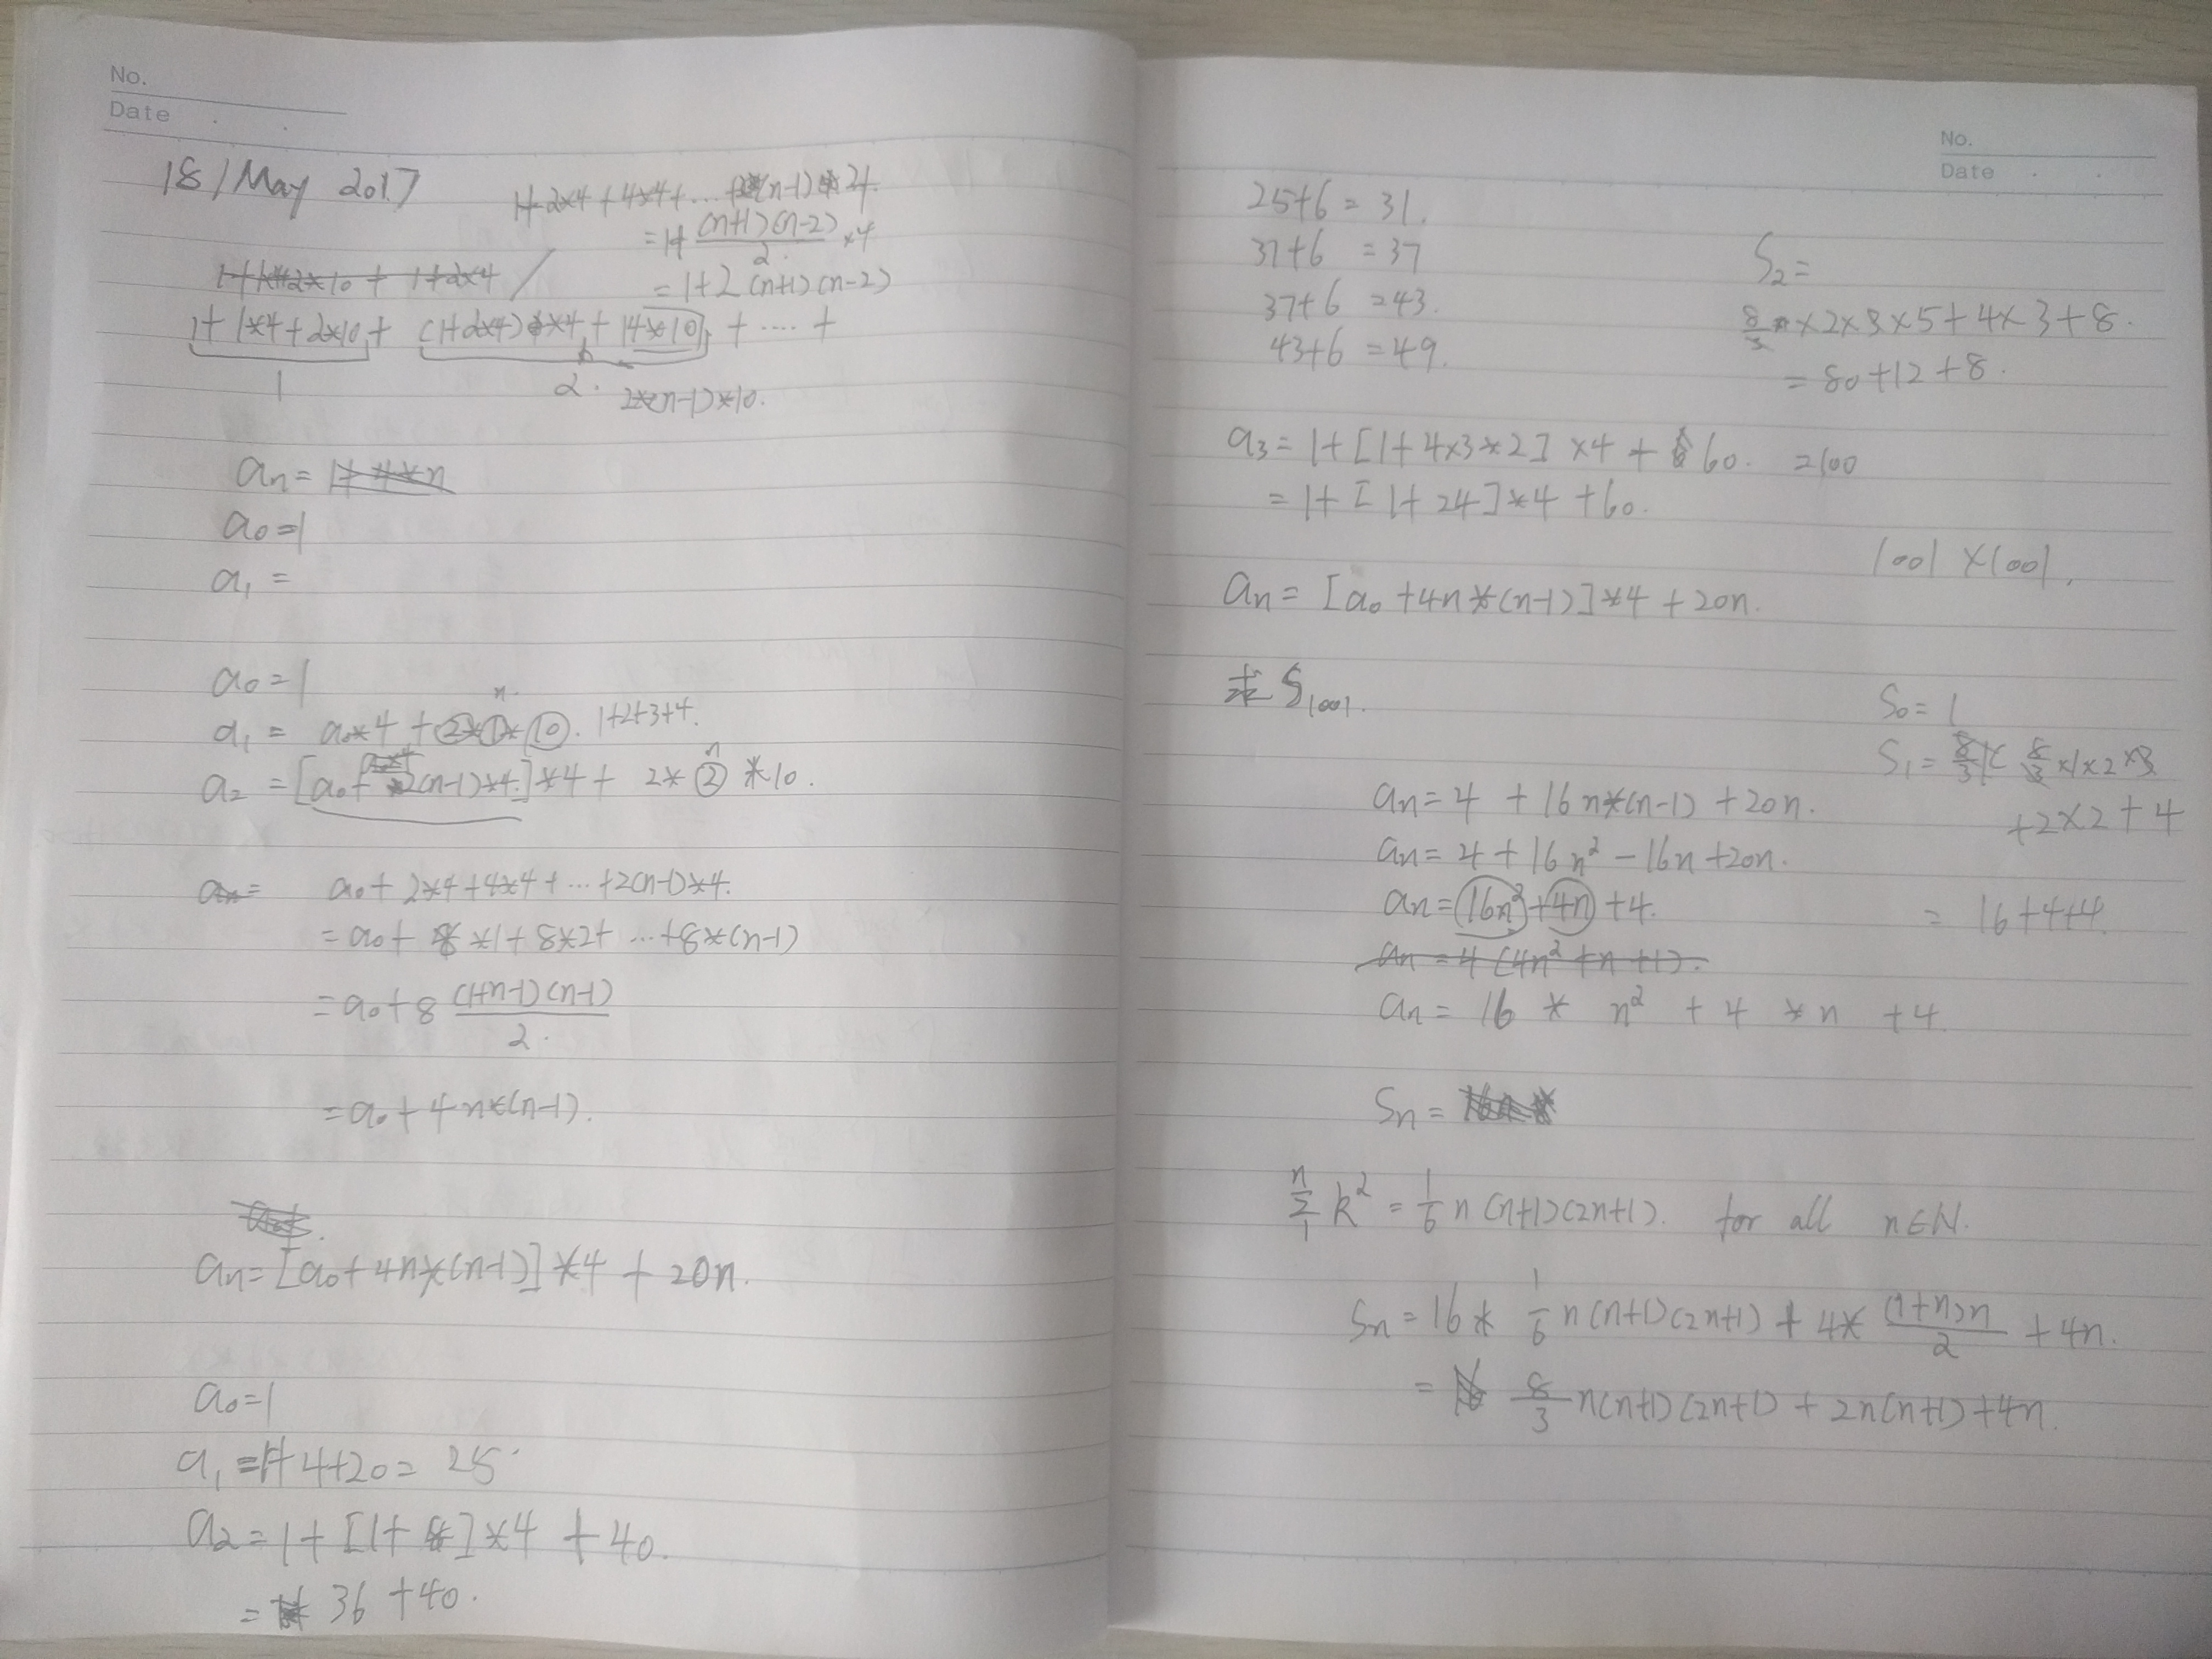 No.
Date
18/May 2017
1+2×4+4×4+...+2*(n-1)*4
=1+ (n+1)(n-2)/2 ×4
=1+2(n+1)(n-2)
1+1*4+2*10+ (1+2*4)*4+4*10 + .... +
1
2.
2*(n-1)*10.
an= 1+4*n
a0=1
a1=
a0=1
n.
a1= a0*4+2*1*10. 1+2+3+4.
a2=[a0+2(n-1)*4]*4+ 2*2*10.
n
an= a0+2*4+4*4+...+2(n-1)*4.
=a0+8*1+8*2+ ...+8*(n-1)
=a0+8 (1+n-1)(n-1)/2.
=a0+4n*(n-1).
an=[a0+4n*(n-1)]*4+20n.
a0=1
a1=1+4+20=25
a2=1+[1+8]*4+40.
=36+40.
No.
Date
25+6=31.
31+6=37
37+6=43.
43+6=49.
S2=
8/3×2×3×5+4×3+8.
=80+12+8.
a3=1+[1+4×3*2]×4+60. =100
=1+[1+24]*4+60.
1001×1001.
an=[a0+4n*(n-1)]*4+20n.
求S1001.
S0=1
S1= 8/3×1×2×3
+2×2+4
=16+4+4.
an=4+16n*(n-1)+20n.
an=4+16n²-16n+20n.
an=16n²+4n+4.
an=4(4n²+n+1).
an=16*n²+4*n+4.
Sn=
n∑1 k²=1/6 n(n+1)(2n+1). for all n∈N.
Sn=16* 1/6 n(n+1)(2n+1)+4* (1+n)n/2 +4n.
= 8/3 n(n+1)(2n+1)+2n(n+1)+4n.